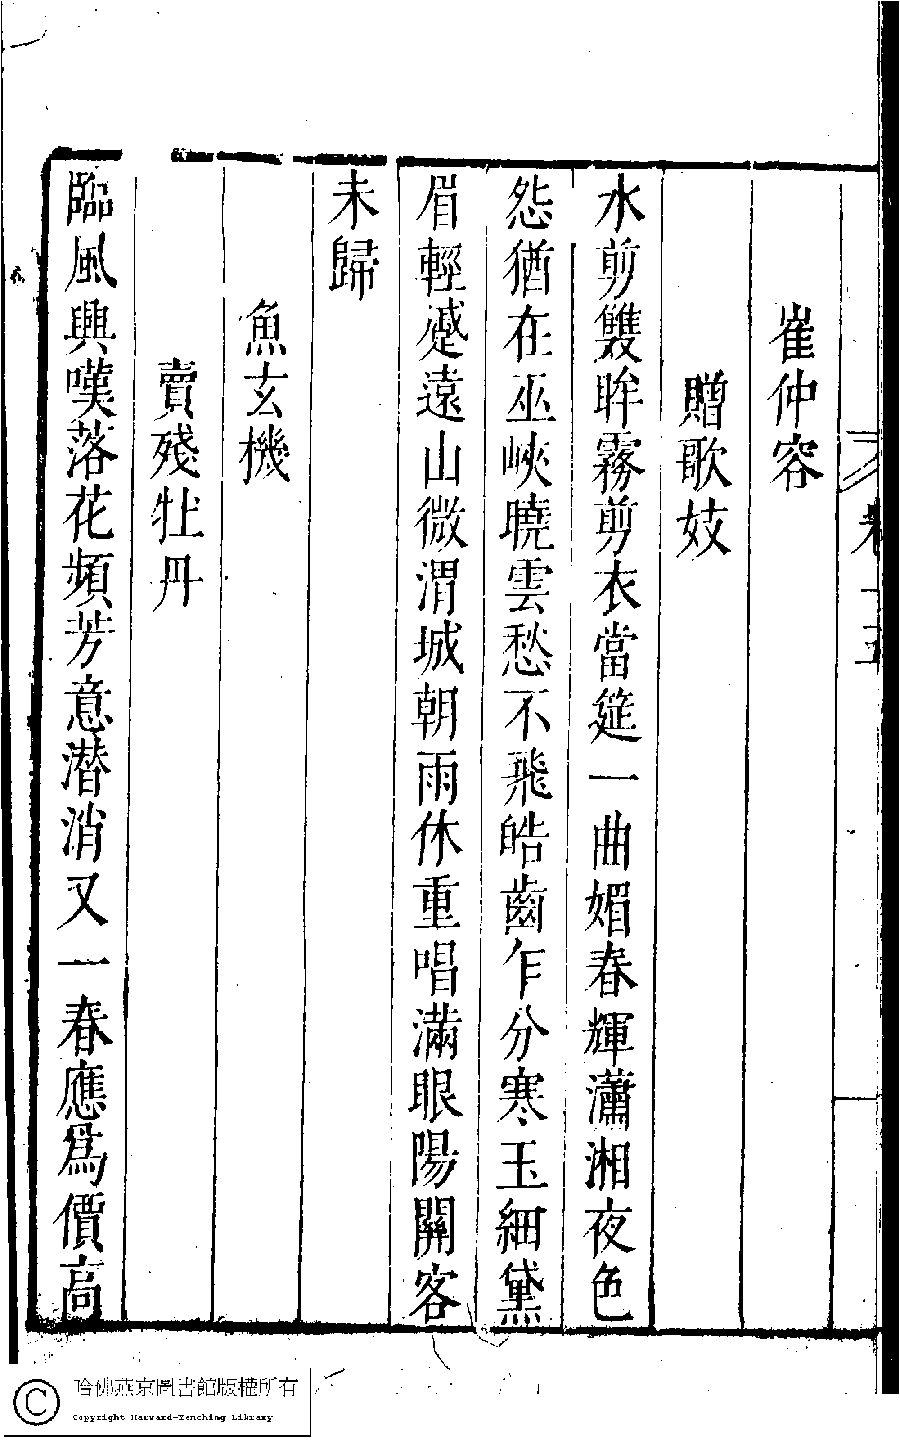 卷十五
崔仲容
贈歌妓
水剪雙眸霧剪衣當筵一曲媚春輝瀟湘夜色
怨猶在巫峽曉雲愁不飛皓齒乍分寒玉細黛
眉輕蹙遠山微渭城朝雨休重唱滿眼陽關客
未歸
魚玄機
賣殘牡丹
臨風興嘆落花頻芳意潜消又一春應爲價高
哈佛燕京圖書館版權所有
Copyright Harvard-Yenching Library